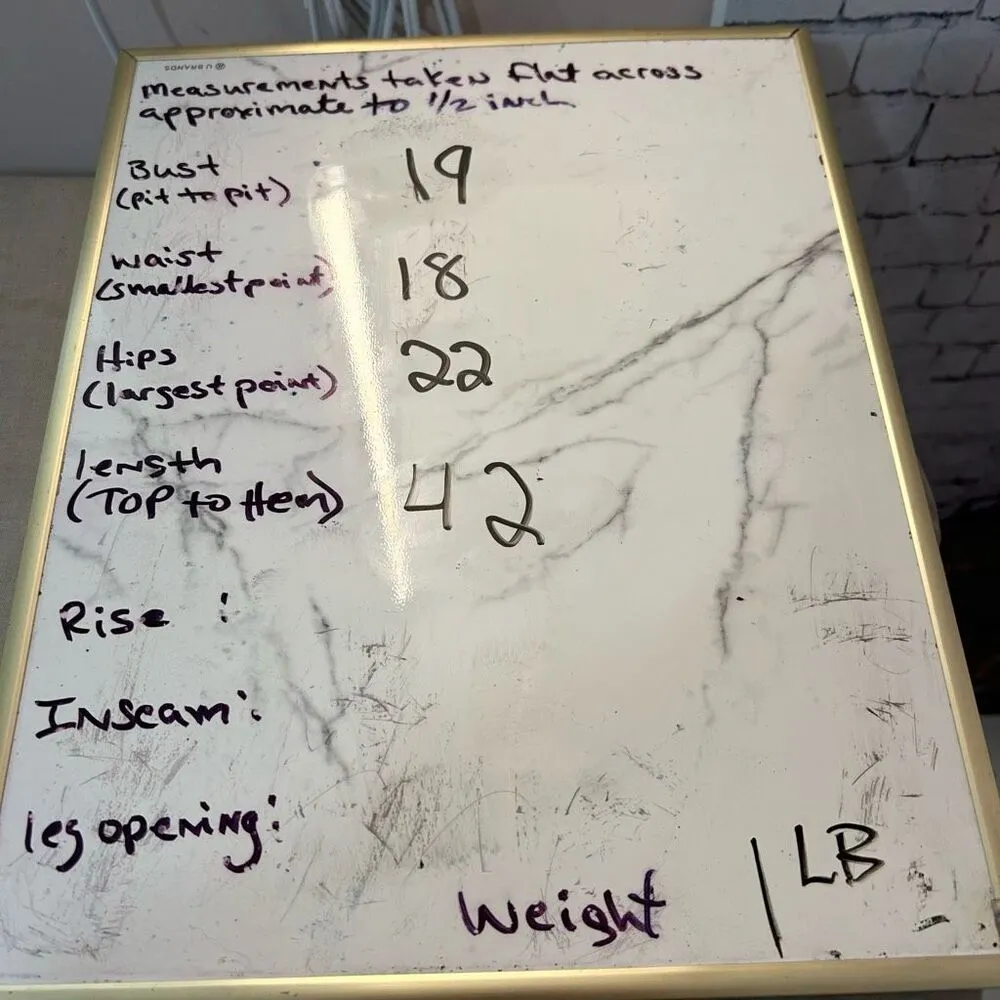 U BRANDS
measurements taken flat across
approximate to 1/2 inch
Bust 19
(pit to pit)
waist 18
(smallest point)
Hips 22
(largest point)
length 42
(TOP to Hem)
Rise :
Inseam :
leg opening :
Weight 1 LB